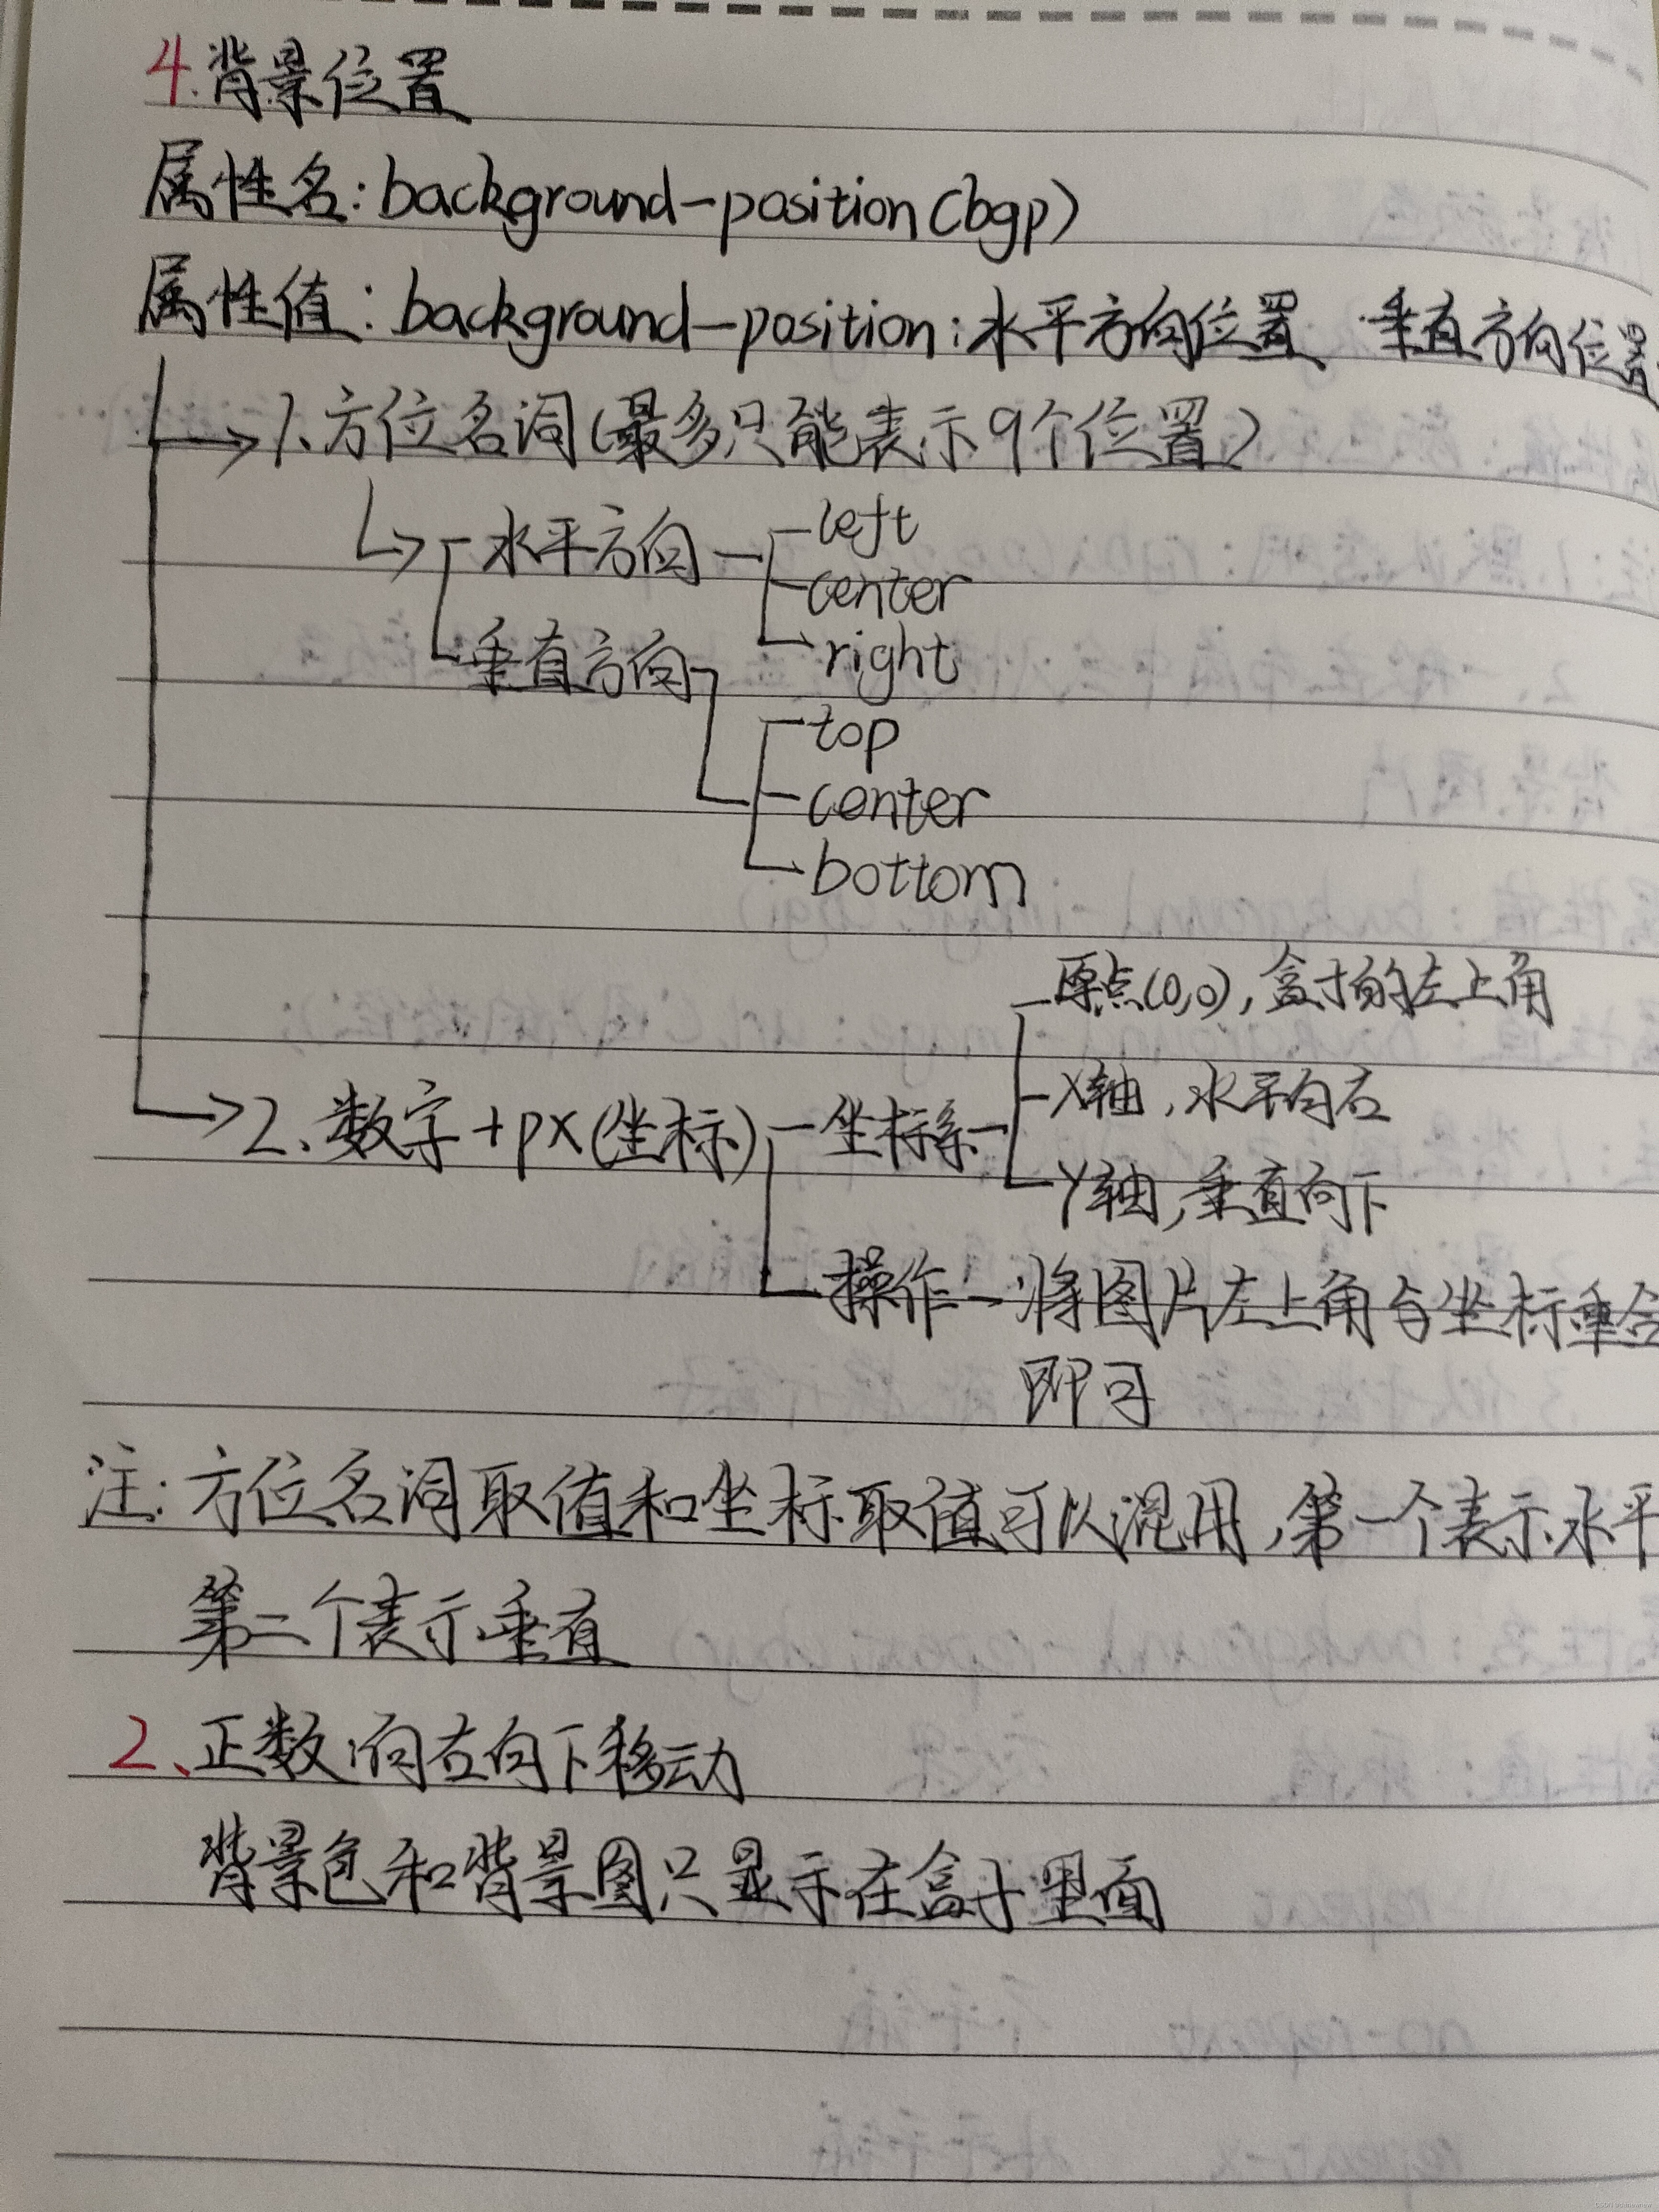 4.背景位置
属性名:background-position(bgp)
属性值:background-position:水平方向位置 垂直方向位置
1、方位名词(最多只能表示9个位置)
水平方向
left
center
right
垂直方向
top
center
bottom
2、数字+px(坐标)
坐标系
原点(0,0),盒子的左上角
X轴,水平向右
Y轴,垂直向下
操作
将图片左上角与坐标重合
即可
注:方位名词取值和坐标取值可以混用,第一个表示水平
第二个表示垂直
2、正数:向右向下移动
背景色和背景图只显示在盒子里面